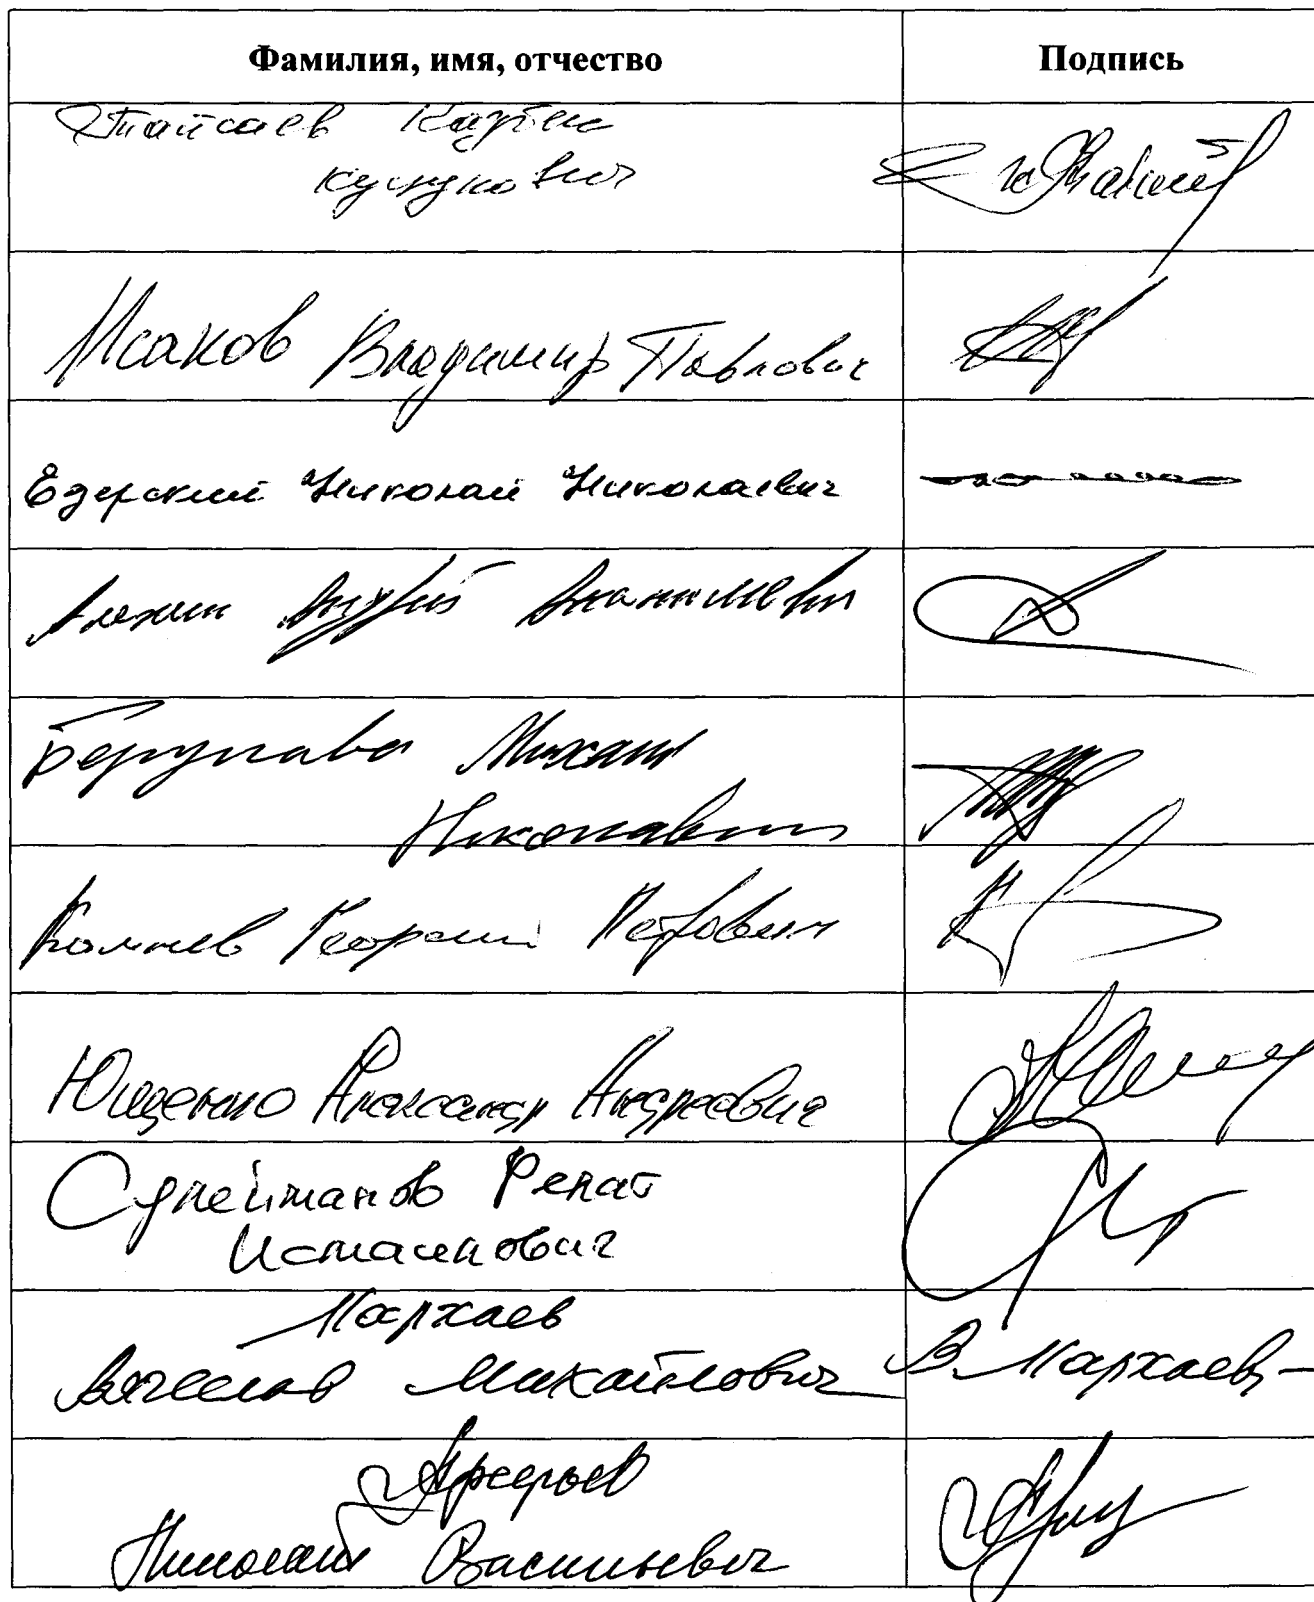 Фамилия, имя, отчество Подпись
Тайсаев Казбек
Куцукович
Исаков Владимир Павлович
Езерский Николай Николаевич
Алехин Андрей Анатольевич
Берулава Михаил
Николаевич
Камнев Георгий Петрович
Ющенко Александр Андреевич
Сулейманов Ренат
Исмаилович
Мархаев
Вячеслав Михайлович В. Мархаев
Арефьев
Николай Васильевич